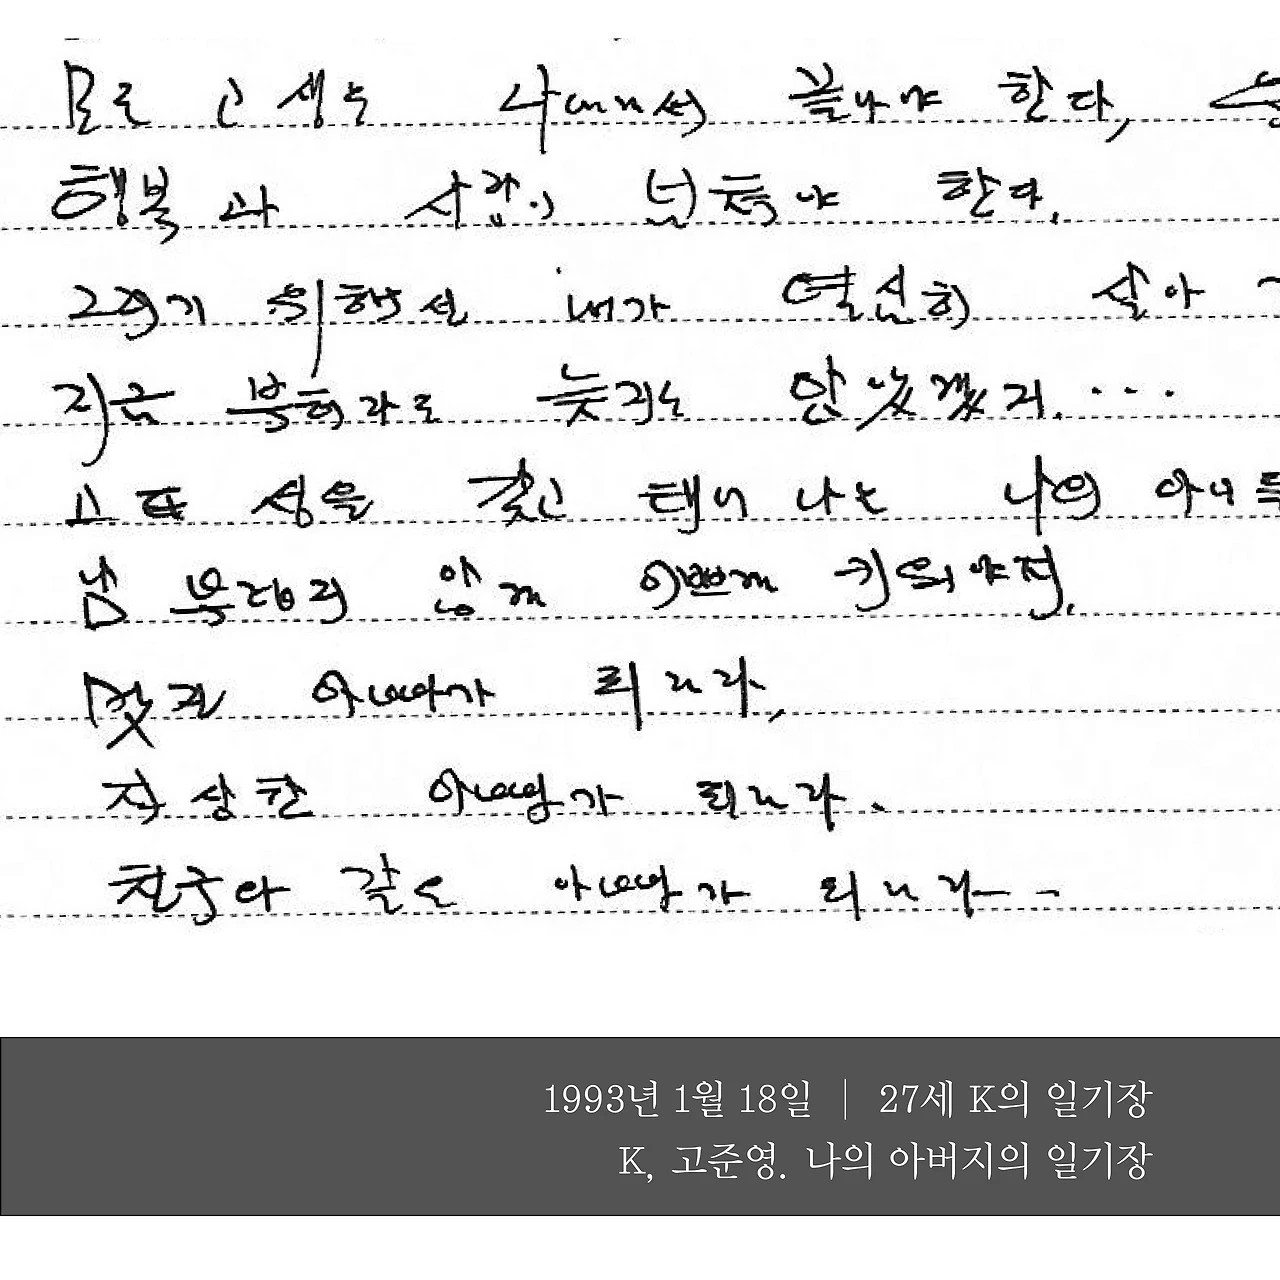 모든 고생은 나에게서 끝나야 한다,
행복과 사랑이 넘쳐야 한다.
그러기 위해선 내가 열심히 살아
지금 부터라도 늦지는 않았겠지....
고 씨 성을 갖고 태어나는 나의 아이
남 부럽지 않게 이쁘게 키워야지.
멋진 아빠가 되리라,
자상한 아빠가 되리라.
친구와 같은 아빠가 되리라--
1993년 1월 18일 | 27세 K의 일기장
K, 고준영. 나의 아버지의 일기장